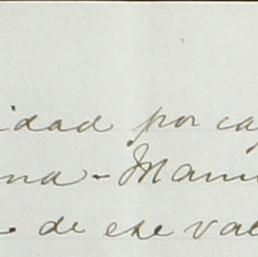 idad por ca
na - Manu
de ese val